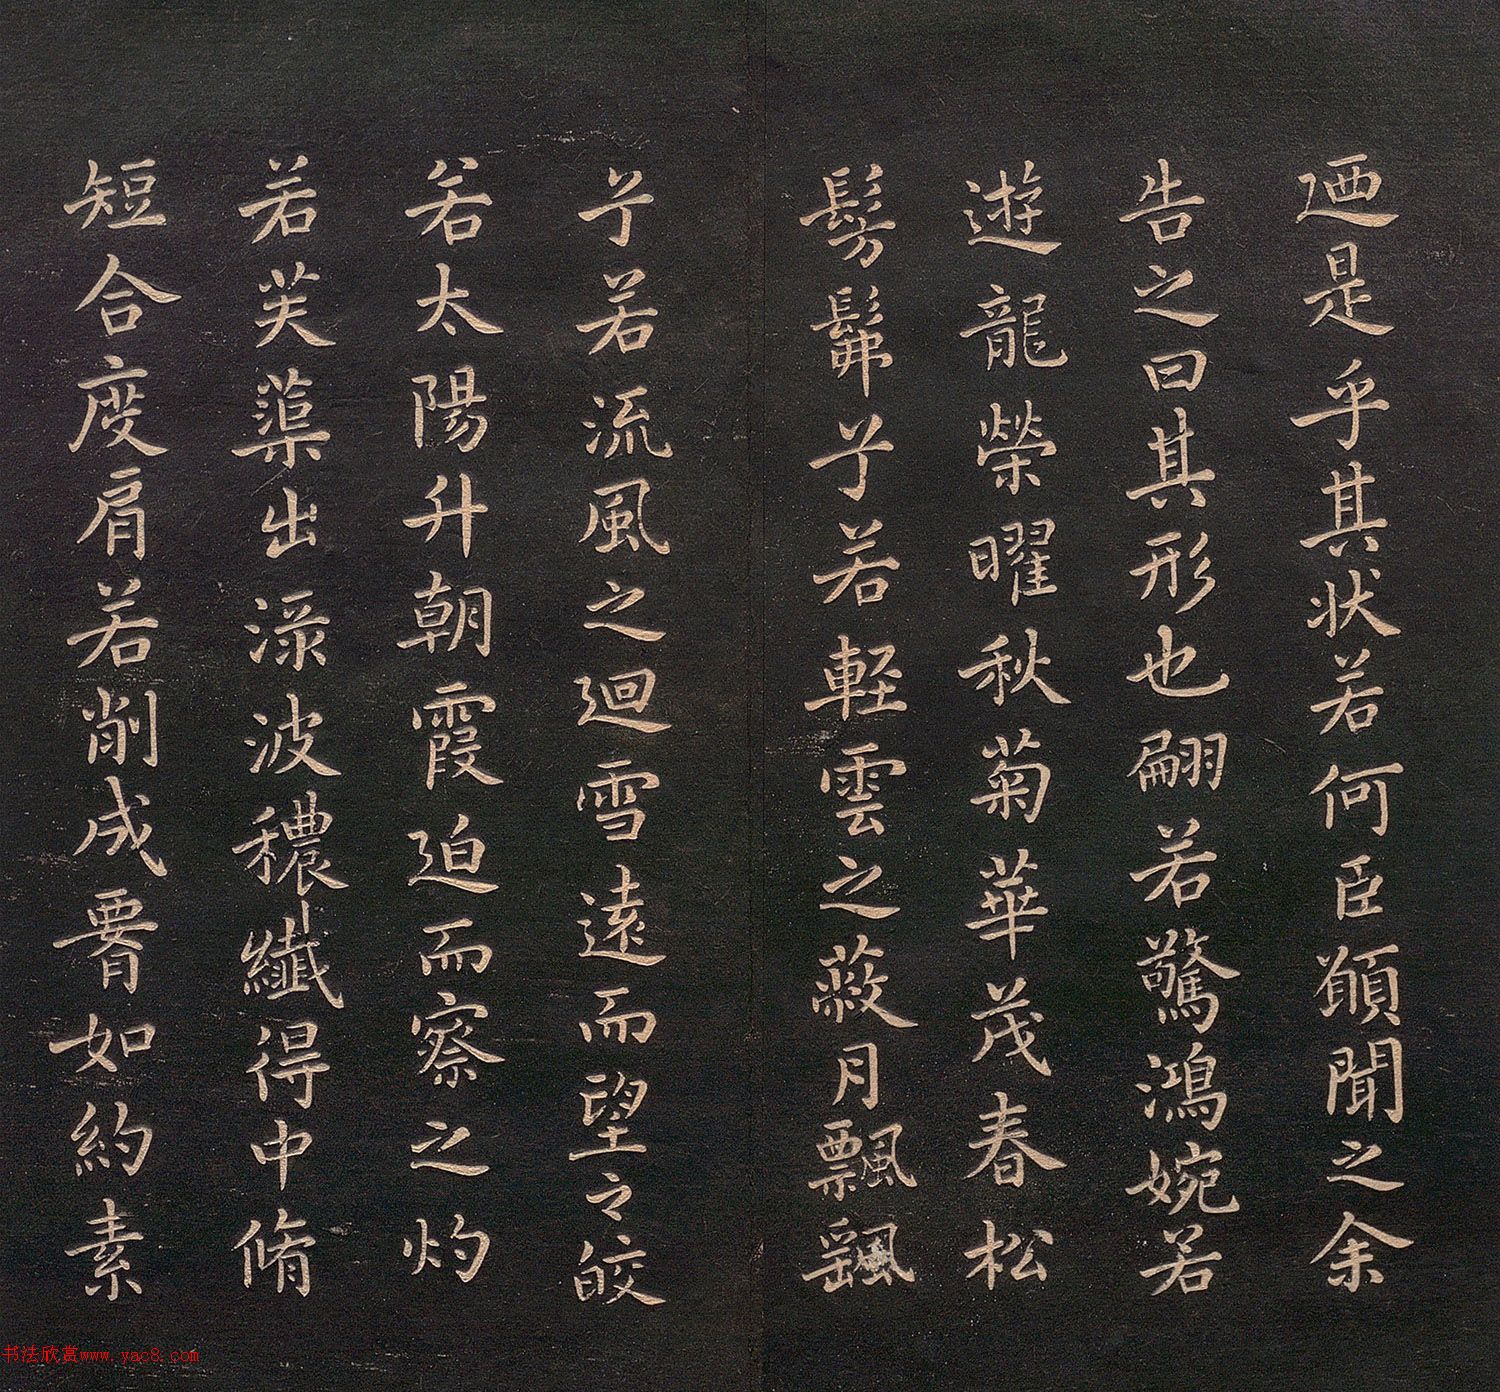 迺是乎其状若何臣願聞之余
告之曰其形也翩若驚鴻婉若
遊龍榮曜秋菊華茂春松
髣髴兮若輕雲之蔽月飄颻
兮若流風之迴雪遠而望之皎
若太陽升朝霞迫而察之灼
若芙蕖出渌波穠纖得中脩
短合度肩若削成腰如約素
书法欣赏www.yac8.com